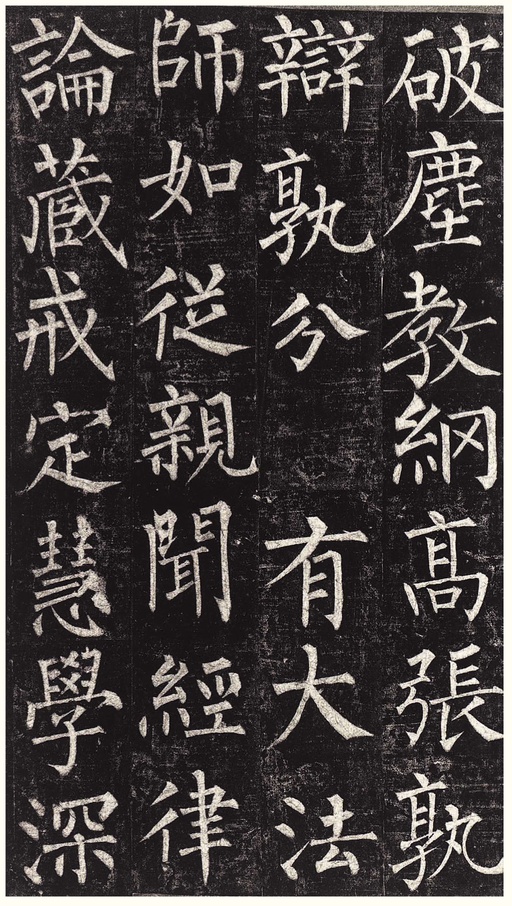 破塵教綱高張孰
辯孰分有大法
師如從親聞經律
論藏戒定慧學深